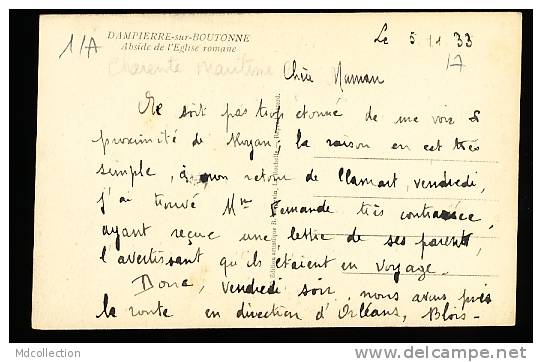 1/A
DAMPIERRE-sur-BOUTONNE
Abside de l'Eglise romane
Le 5 11 33
/A
Charente Maritime
Chère Maman
Ne soit pas trop étonné de me voir à
proximité de Royan, la raison en est très
simple, à mon retour de Clamart, vendredi,
j'ai trouvé Mme Fernande très contrariée,
ayant reçue une lettre de ses parents,
l'avertissant qu'ils étaient en voyage.
Donc, vendredi soir, nous avons pris
la route en direction d'Orléans, Blois-
Mdcollection
http://www.delcampe.net